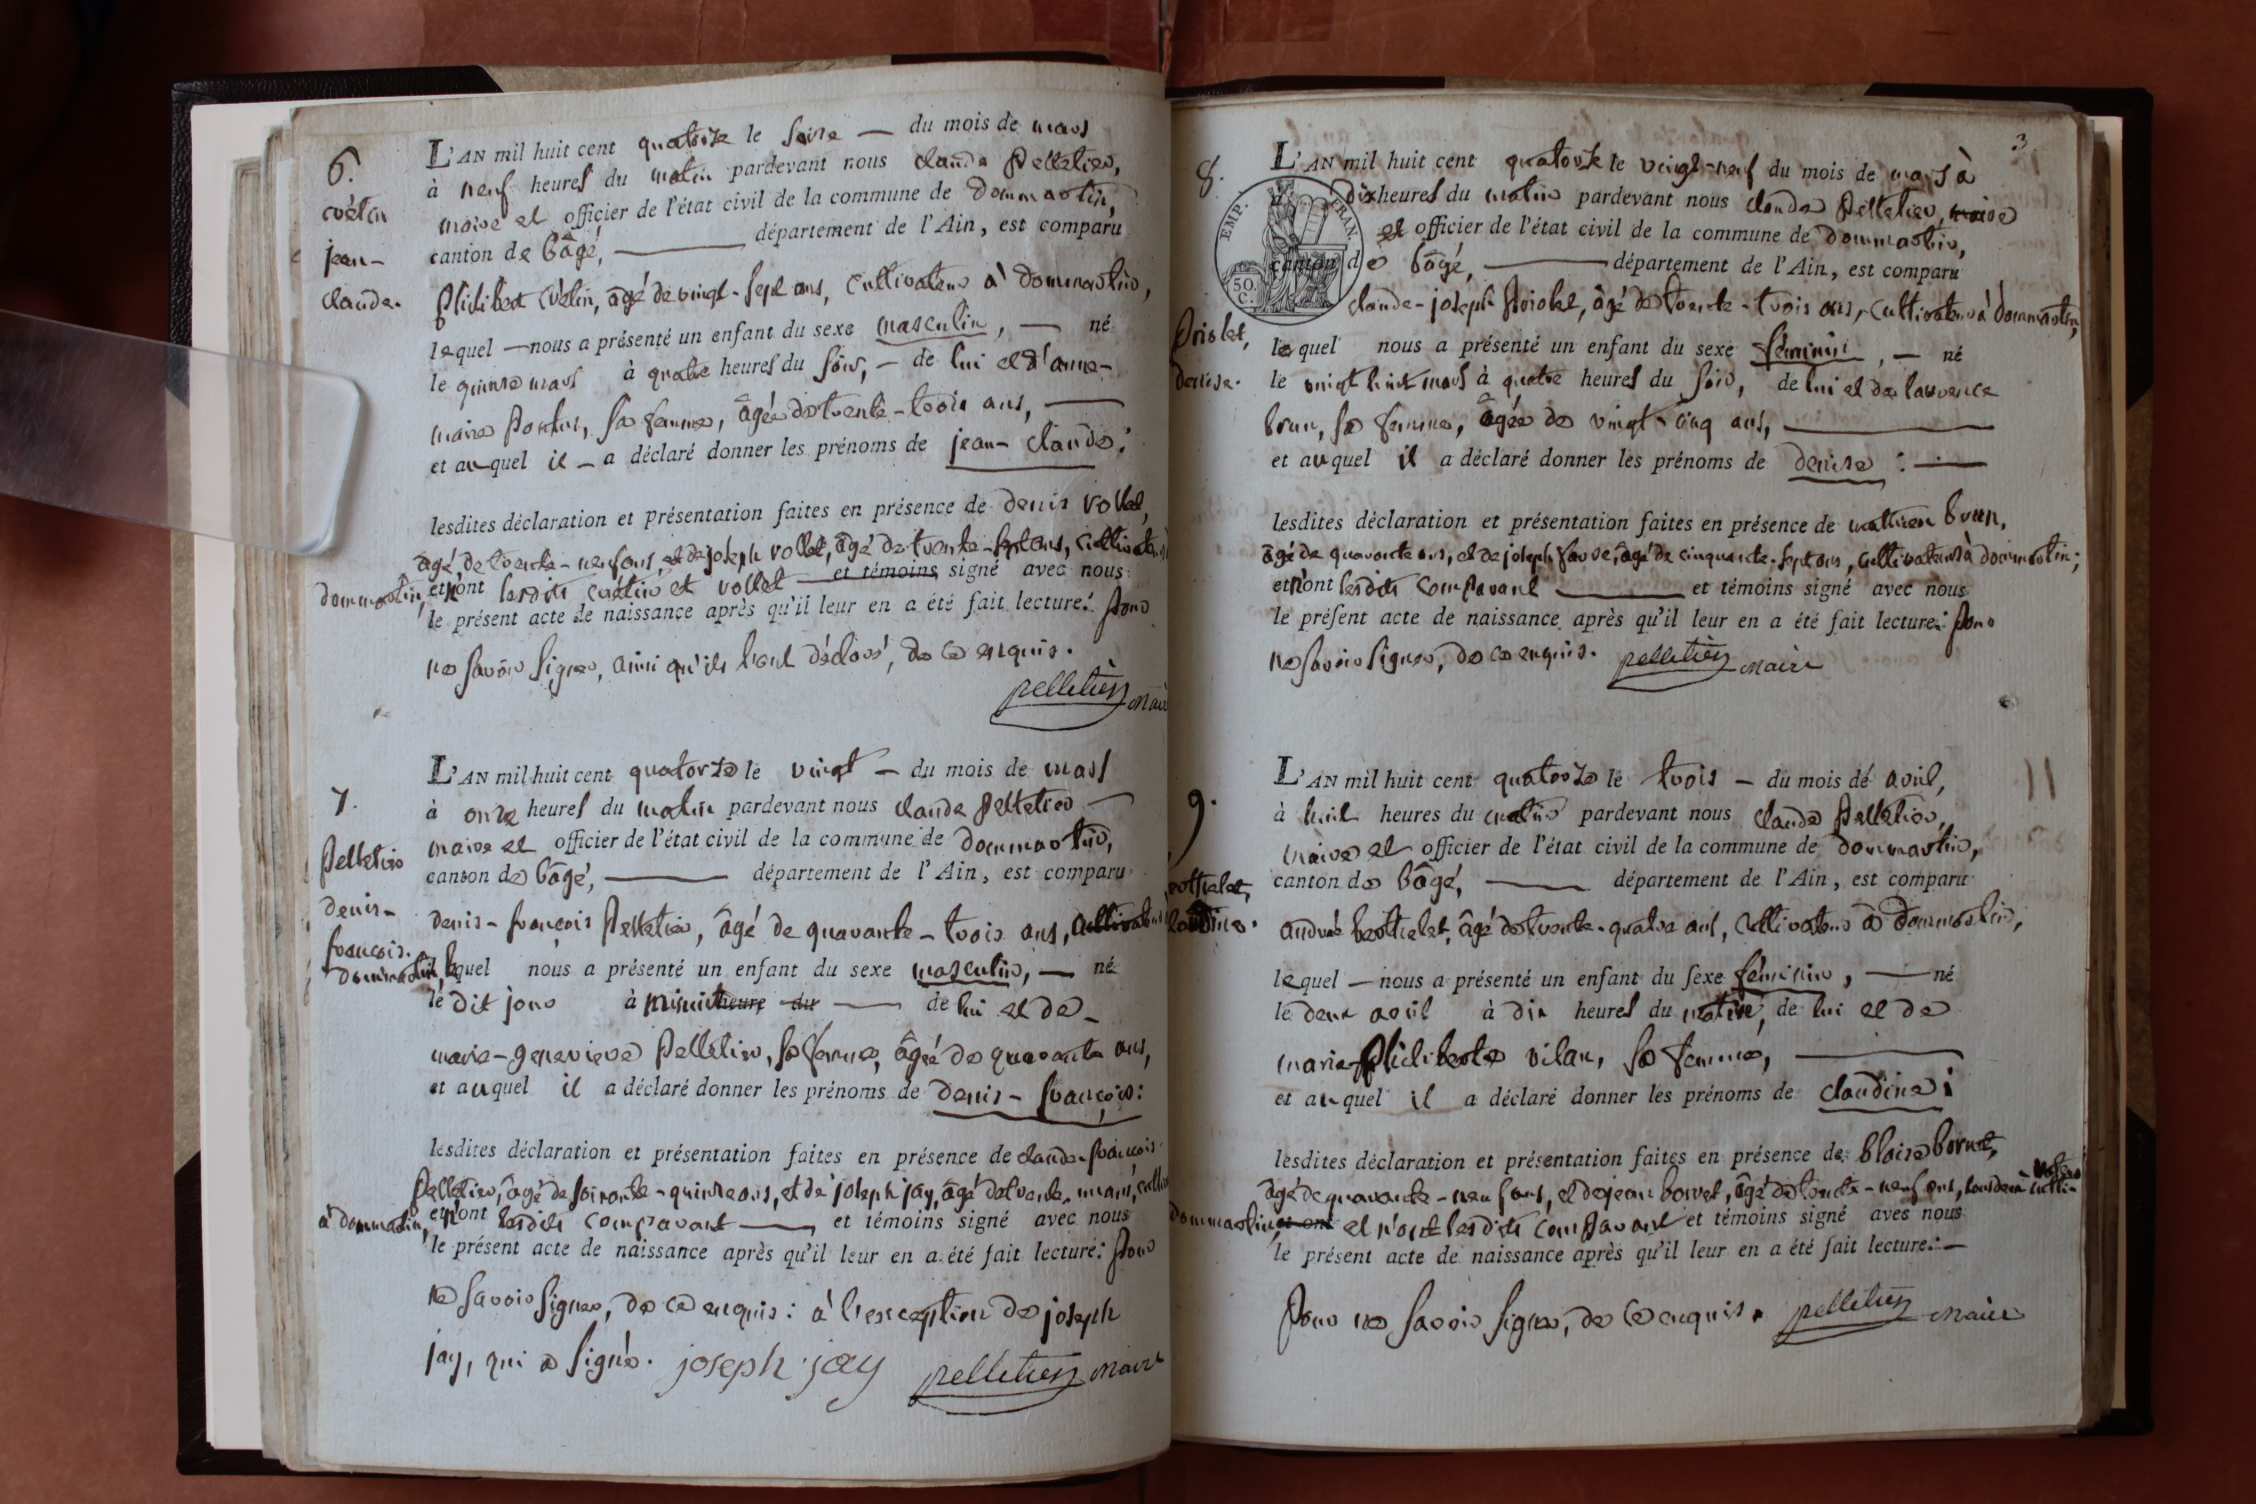 6.
crétin
jean-
claude.
L'AN mil huit cent quatorze le seize — du mois de mars
à neuf heures du matin pardevant nous claude pelletier,
maire et officier de l'état civil de la commune de dommartin,
canton de bâgé, — département de l'Ain, est comparu
philibert crétin, âgé de vingt-sept ans, cultivateur à dommartin,
lequel — nous a présenté un enfant du sexe masculin, — né
le quinze mars à quatre heures du soir, — de lui et d'anne-
marie, sa femme, âgée de trente-trois ans, —
et auquel il — a déclaré donner les prénoms de jean-claude:
lesdites déclaration et présentation faites en présence de denis vollet,
âgé de trente-neuf ans, et de joseph vollet, âgé de trente-sept ans, cultivateurs à
dommartin, et n'ont lesdits crétin et vollet — et témoins signé avec nous
le présent acte de naissance après qu'il leur en a été fait lecture: pour
ne savoir signer, ainsi qu'ils l'ont déclaré, de ce enquis.
pelletier maire
7.
pelletier
denis-
françois.
L'AN mil huit cent quatorze le vingt — du mois de mars
à onze heures du matin pardevant nous claude pelletier —
maire et officier de l'état civil de la commune de dommartin,
canton de bâgé, — département de l'Ain, est comparu
denis-françois pelletier, âgé de quarante-trois ans, cultivateur à
dommartin, lequel nous a présenté un enfant du sexe masculin, — né
le dit jour à minuit heure du — de lui et de-
marie-genevieve pelletier, sa femme, âgée de quarante ans,
et auquel il a déclaré donner les prénoms de denis-françois:
lesdites déclaration et présentation faites en présence de claude-françois
pelletier, âgé de soixante-quinze ans, et de joseph jay, âgé de trente-un ans,
à dommartin, et n'ont lesdits comparant — et témoins signé avec nous
le présent acte de naissance après qu'il leur en a été fait lecture: pour
ne savoir signer, de ce enquis: à l'exception de joseph
jay, qui a signé. joseph jay pelletier maire
3
8.
priolet,
denise.
EMP. FRAN.
50. C.
L'AN mil huit cent quatorze le vingt-neuf du mois de mars à
dix heures du matin pardevant nous claude pelletier, maire
et officier de l'état civil de la commune de dommartin,
canton de bâgé, — département de l'Ain, est comparu
claude-joseph priolet, âgé de trente-trois ans, cultivateur à dommartin,
lequel nous a présenté un enfant du sexe féminin, — né
le vingt huit mars à quatre heures du soir, de lui et de laurence
brun, sa femme, âgée de vingt-cinq ans, —
et auquel il a déclaré donner les prénoms de denise: —
lesdites déclaration et présentation faites en présence de mathieu brun,
âgé de quarante ans, et de joseph favre, âgé de cinquante-sept ans, cultivateurs à dommartin;
et n'ont lesdits comparant — et témoins signé avec nous
le présent acte de naissance après qu'il leur en a été fait lecture: pour
ne savoir signer, de ce enquis. pelletier maire
11
9.
berthelet,
claudine.
L'AN mil huit cent quatorze le trois — du mois de avril,
à huit heures du matin pardevant nous claude pelletier,
maire et officier de l'état civil de la commune de dommartin,
canton de bâgé, — département de l'Ain, est comparu
andré berthelet, âgé de trente-quatre ans, cultivateur à dommartin,
lequel — nous a présenté un enfant du sexe féminin, — né
le deux avril à dix heures du matin, de lui et de
marie philiberte vilan, sa femme, —
et auquel il a déclaré donner les prénoms de claudine:
lesdites déclaration et présentation faites en présence de blaise
âgé de quarante-neuf ans, et de jean, âgé de trente-neuf ans, tous deux cultivateurs
dommartin, et ont et n'ont lesdits comparant et témoins signé avec nous
le présent acte de naissance après qu'il leur en a été fait lecture: —
pour ne savoir signer, de ce enquis. pelletier maire